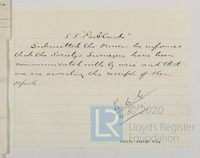 S.S. "Parklands"
Submitted the Owner be informed
that the Society's Surveyors have been
communicated with by wire and that
we are awaiting the receipt of their
report.
LR
Lloyd's Register
Foundation